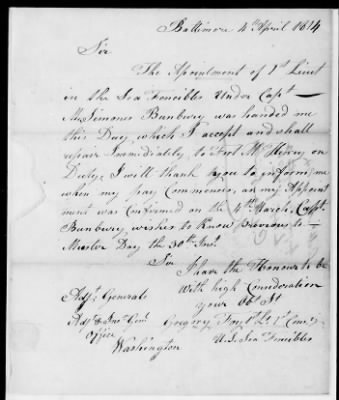 Baltimore 4th April 1814
Sir
The Apointment of 1st Lieut
in the Sea Fencibles Under Capt
M. Simmes Bunbury was handed me
this Day, which I accept and shall
repair Immidiately, to Fort McHenry on
Duty, I will thank you to inform me
when my pay Commences, as my Appoint
ment was Confirmed on the 4th March, Capt.
Bunbury wishes to Know previous to
Muster Day the 30th Inst.
Sir
I have the Honour to be
With high Consideration
your Obt. St
Adjt. General
Adjt. & Insr. Genl. Gregory Foy 1st Lt 1st Comy.
Office U.S. Sea Fencibles
Washington